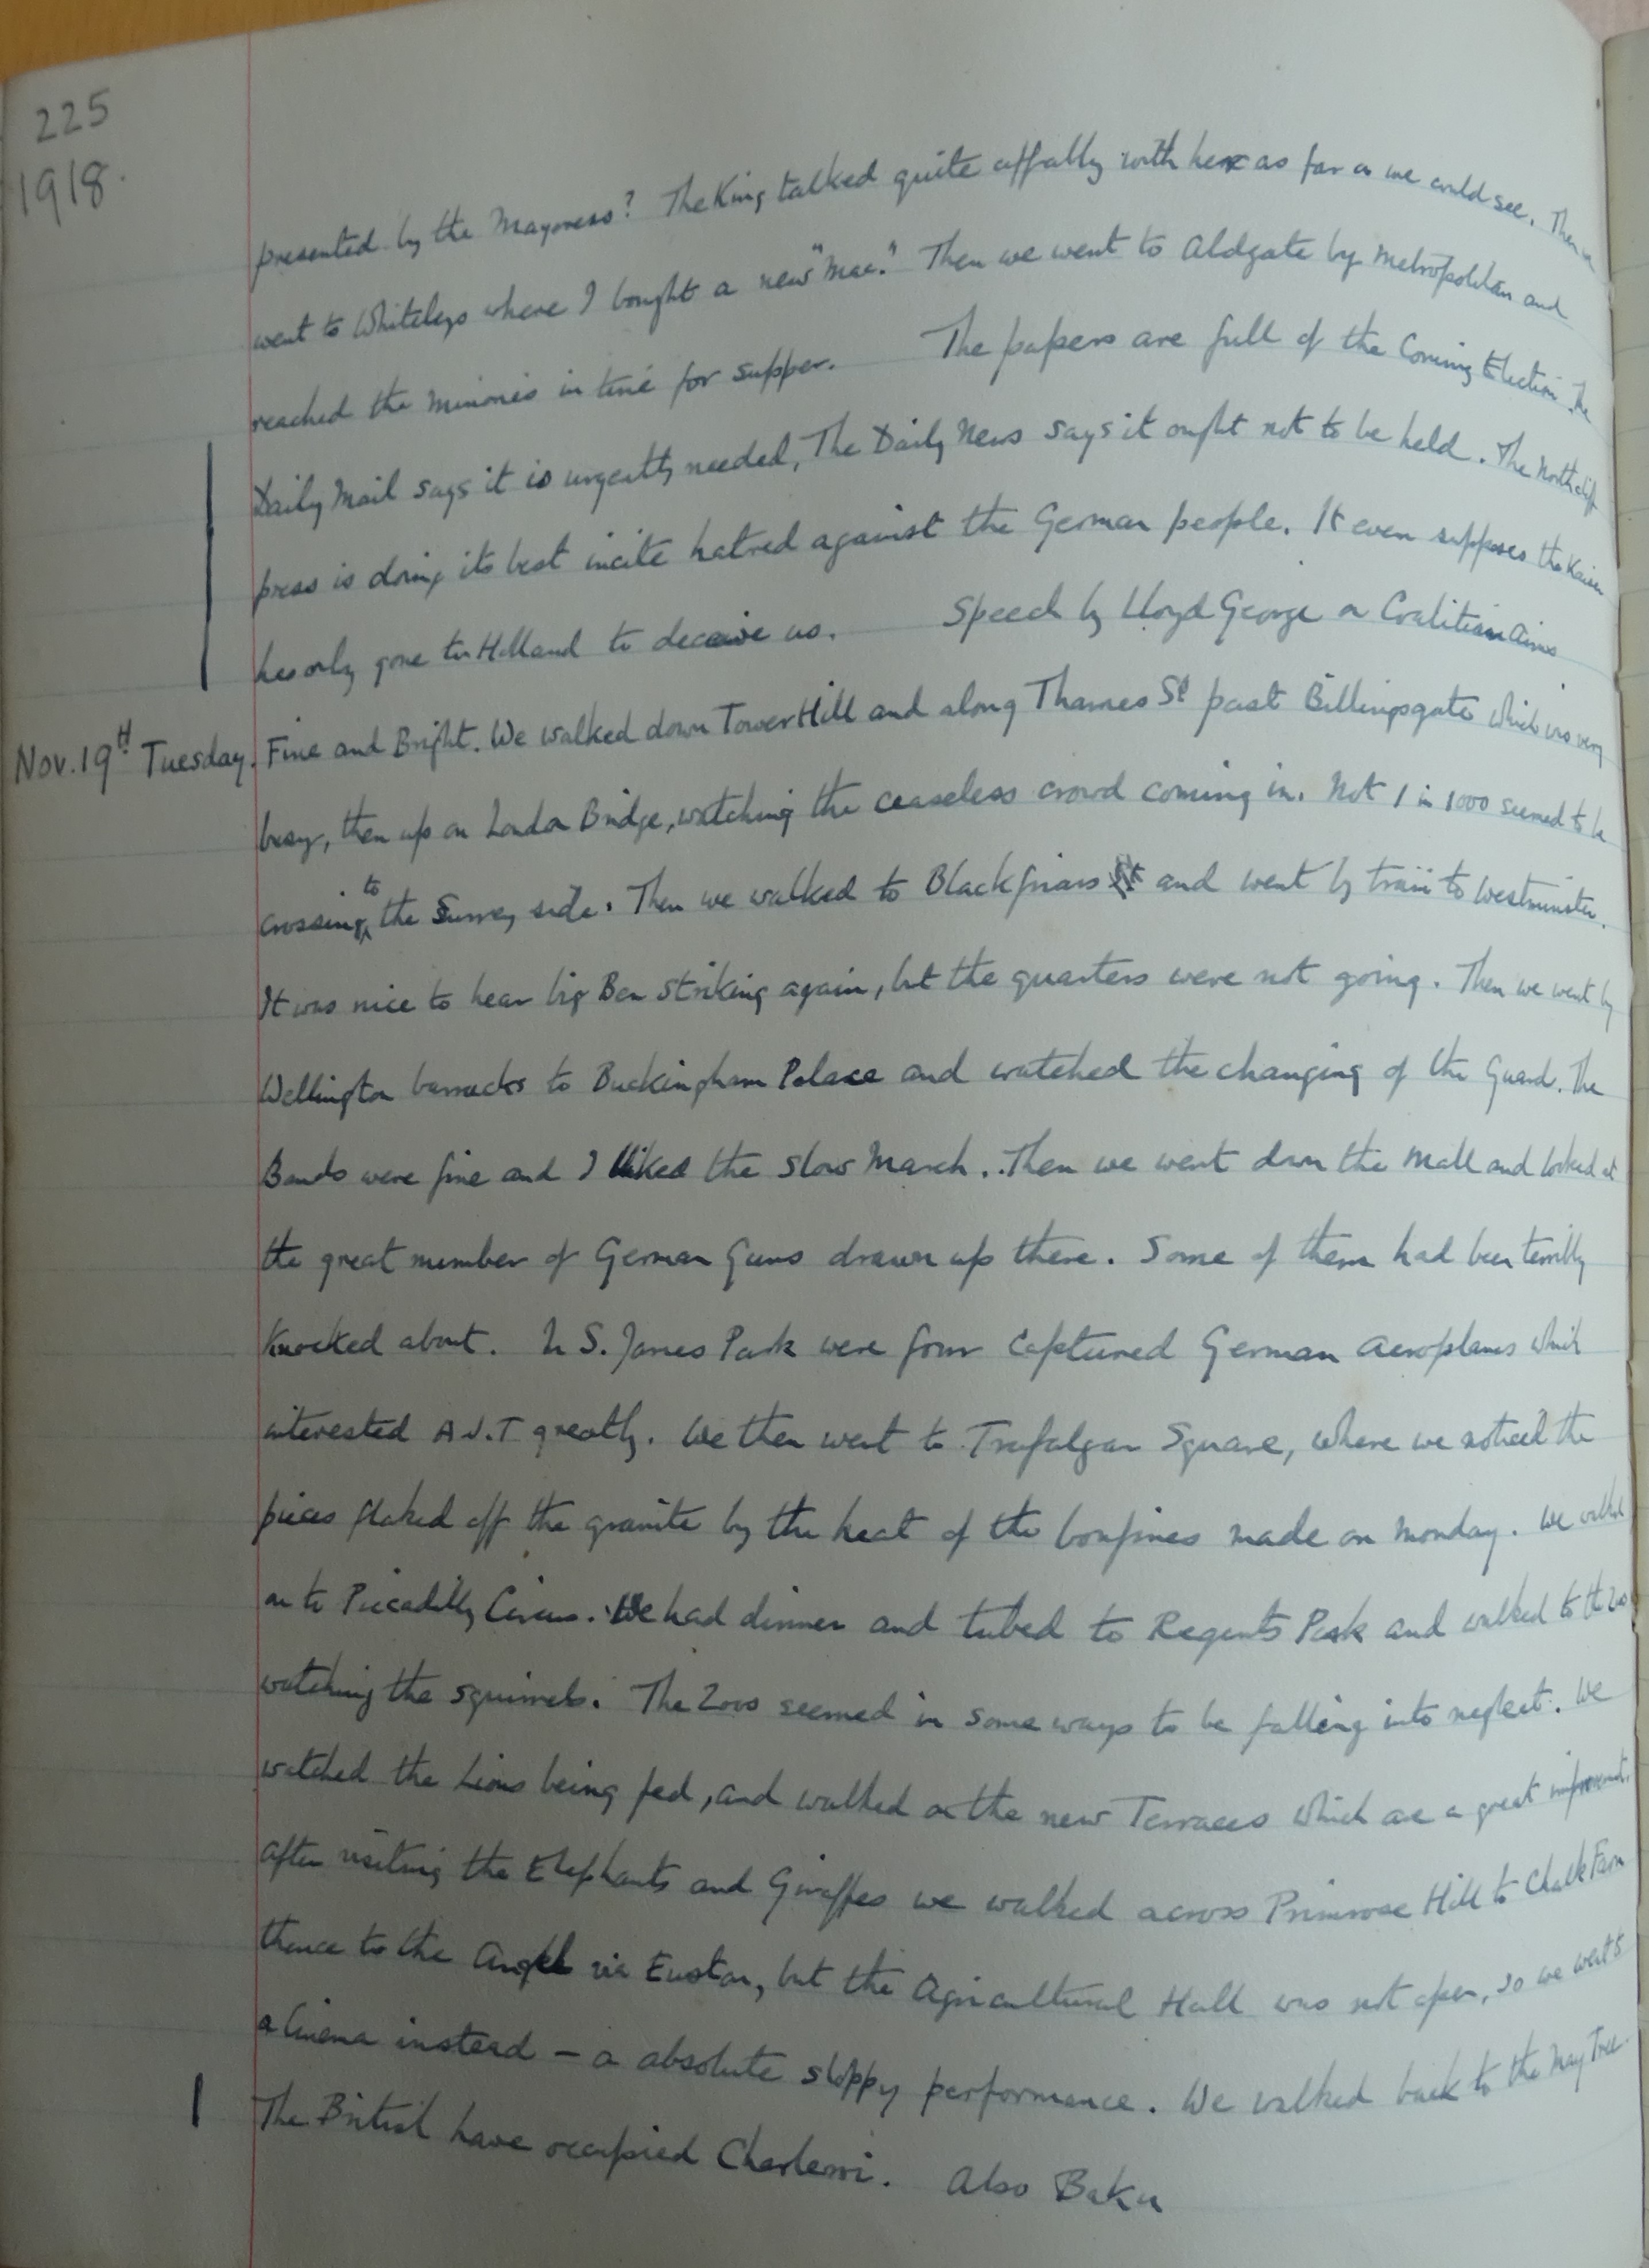 225
1918.
presented by the Mayoress? The King talked quite affably with her as far as we could see. Then we
went to Whiteleys where I bought a new "Mac." Then we went to Aldgate by Metropolitan and
reached the Minories in time for supper. The papers are full of the Coming Election. The
Daily Mail says it is urgently needed, The Daily News says it ought not to be held. The Northcliffe
press is doing its best incite hatred against the German people. It even supposes the Kaiser
has only gone to Holland to deceive us. Speech by Lloyd George on Coalition aims
Nov. 19th Tuesday. Fine and Bright. We walked down Tower Hill and along Thames St past Billingsgate which was very
busy, then up on London Bridge, watching the ceaseless crowd coming in. Not 1 in 1000 seemed to be
crossing to the Surrey side. Then we walked to Blackfriars and went by train to Westminster.
It was nice to hear big Ben striking again, but the quarters were not going. Then we went by
Wellington barracks to Buckingham Palace and watched the changing of the Guard. The
Bands were fine and I liked the slow March. Then we went down the Mall and looked at
the great number of German Guns drawn up there. Some of them had been terribly
knocked about. In S. James Park were four captured German aeroplanes which
interested A.J.T greatly. We then went to Trafalgar Square, where we noticed the
pieces flaked off the granite by the heat of the bonfires made on Monday. We walked
on to Piccadilly Circus. We had dinner and tubed to Regents Park and walked to the Zoo
watching the squirrels. The Zoo seemed in some ways to be falling into neglect. We
watched the Lions being fed, and walked on the new Terraces which are a great improvement.
After visiting the Elephants and Giraffes we walked across Primrose Hill to Chalk Farm
thence to the Angel via Euston, but the Agricultural Hall was not open, so we went to
a Cinema instead - a absolute sloppy performance. We walked back to the May Tree.
The British have occupied Charleroi. Also Baku